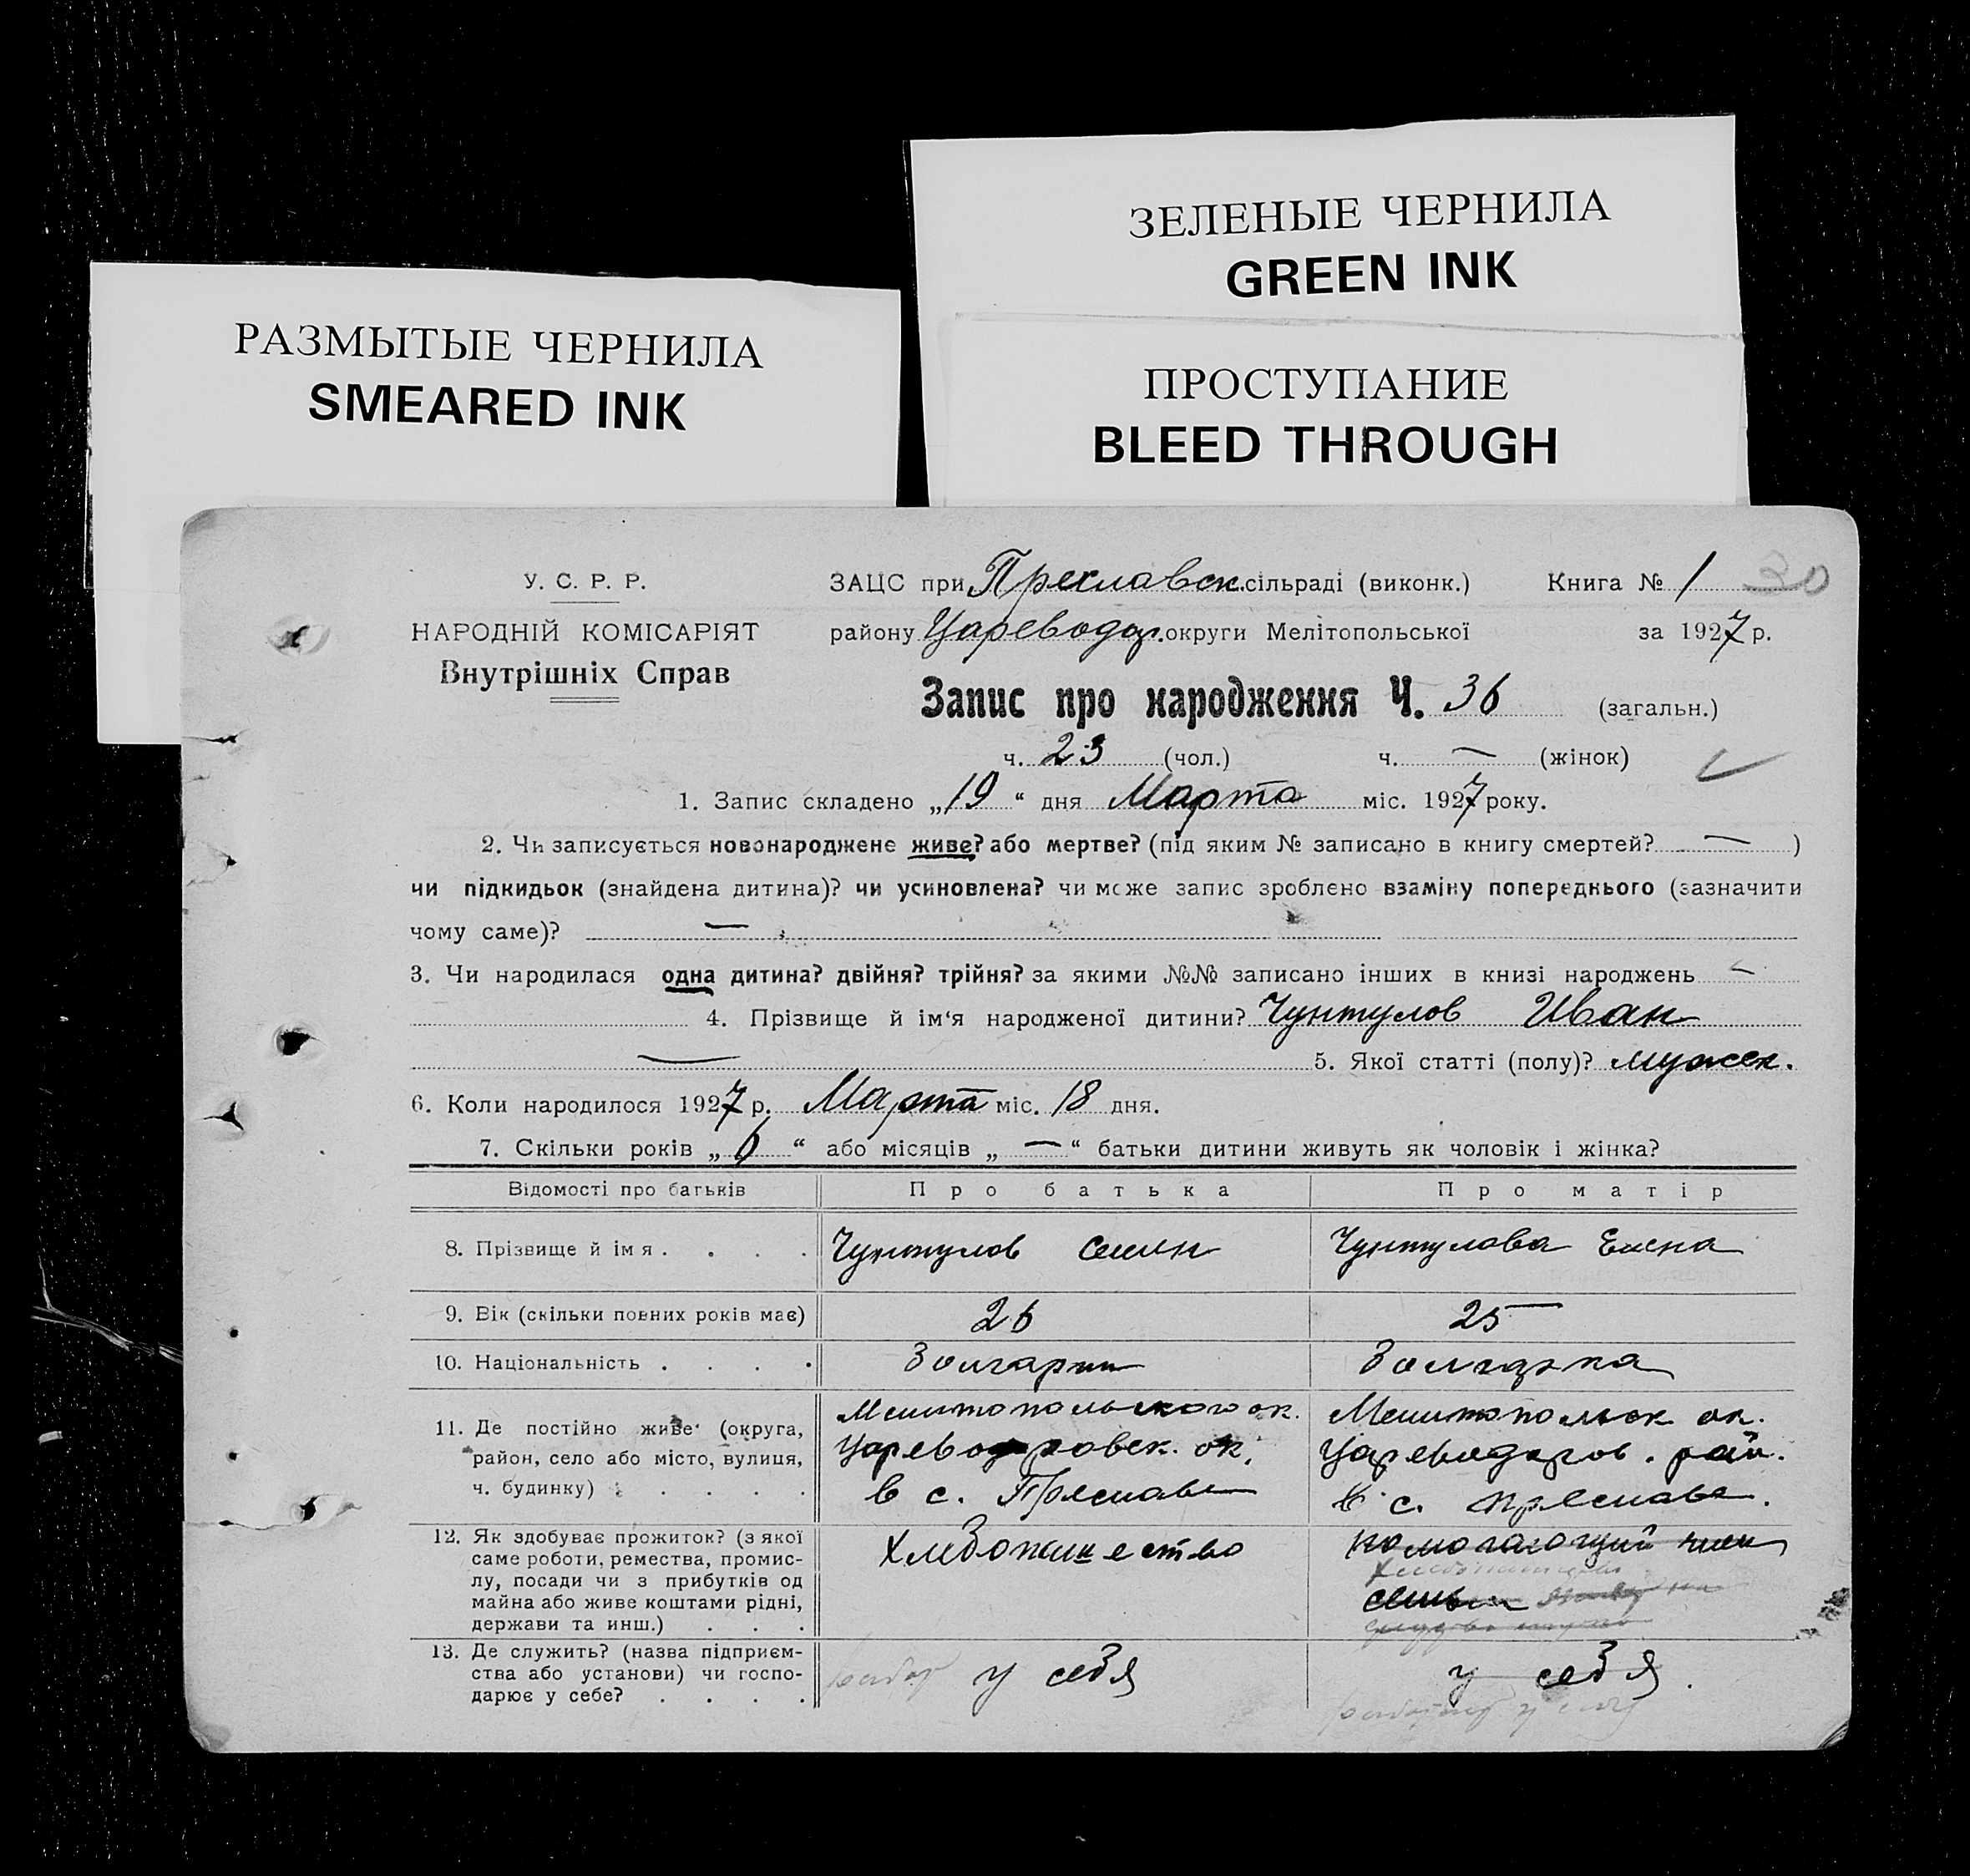 ЗЕЛЕНЫЕ ЧЕРНИЛА
GREEN INK
РАЗМЫТЫЕ ЧЕРНИЛА
SMEARED INK
ПРОСТУПАНИЕ
BLEED THROUGH
У. С. Р. Р.
НАРОДНІЙ КОМІСАРІЯТ
Внутрішніх Справ
ЗАЦС при Преславск. сільраді (виконк.) Книга № 1 30
району Цареводар. округи Мелітопольської за 1927 р.
Запис про народження Ч. 36 (загальн.)
ч. 23 (чол.) ч. — (жінок)
1. Запис складено „19“ дня Марта міс. 1927 року.
2. Чи записується новонароджене живе? або мертве? (під яким № записано в книгу смертей? — )
чи підкидьок (знайдена дитина)? чи усиновлена? чи може запис зроблено взаміну попереднього (зазначити
чому саме)? —
3. Чи народилася одна дитина? двійня? трійня? за якими №№ записано інших в книзі народжень —
4. Прізвище й ім‘я народженої дитини? Чунтулов Иван
— 5. Якої статті (полу)? мужск.
6. Коли народилося 1927 р. Марта міс. 18 дня.
7. Скільки років „6“ або місяців „—“ батьки дитини живуть як чоловік і жінка?
Відомості про батьків Про батька Про матір
8. Прізвище й імя . . . . Чунтулов Семен Чунтулова Елена
9. Вік (скільки повних років має) 26 25
10. Національність . . . . Болгарин Болгарка
11. Де постійно живе (округа, район, село або місто, вулиця, ч. будинку) . . . .
Мелитопольского ок.
Цареводаровск. ок.
в с. Преславе
Мелитопольск ок.
Цареводаров. рай.
в с. Преславе.
12. Як здобуває прожиток? (з якої саме роботи, ремества, промис-
лу, посади чи з прибутків од
майна або живе коштами рідні,
держави та инш.) . . .
Хлебопашество
помогающий член
семьи
13. Де служить? (назва підприєм-
ства або установи) чи госпо-
дарює у себе? . . . .
у себя
у себя.